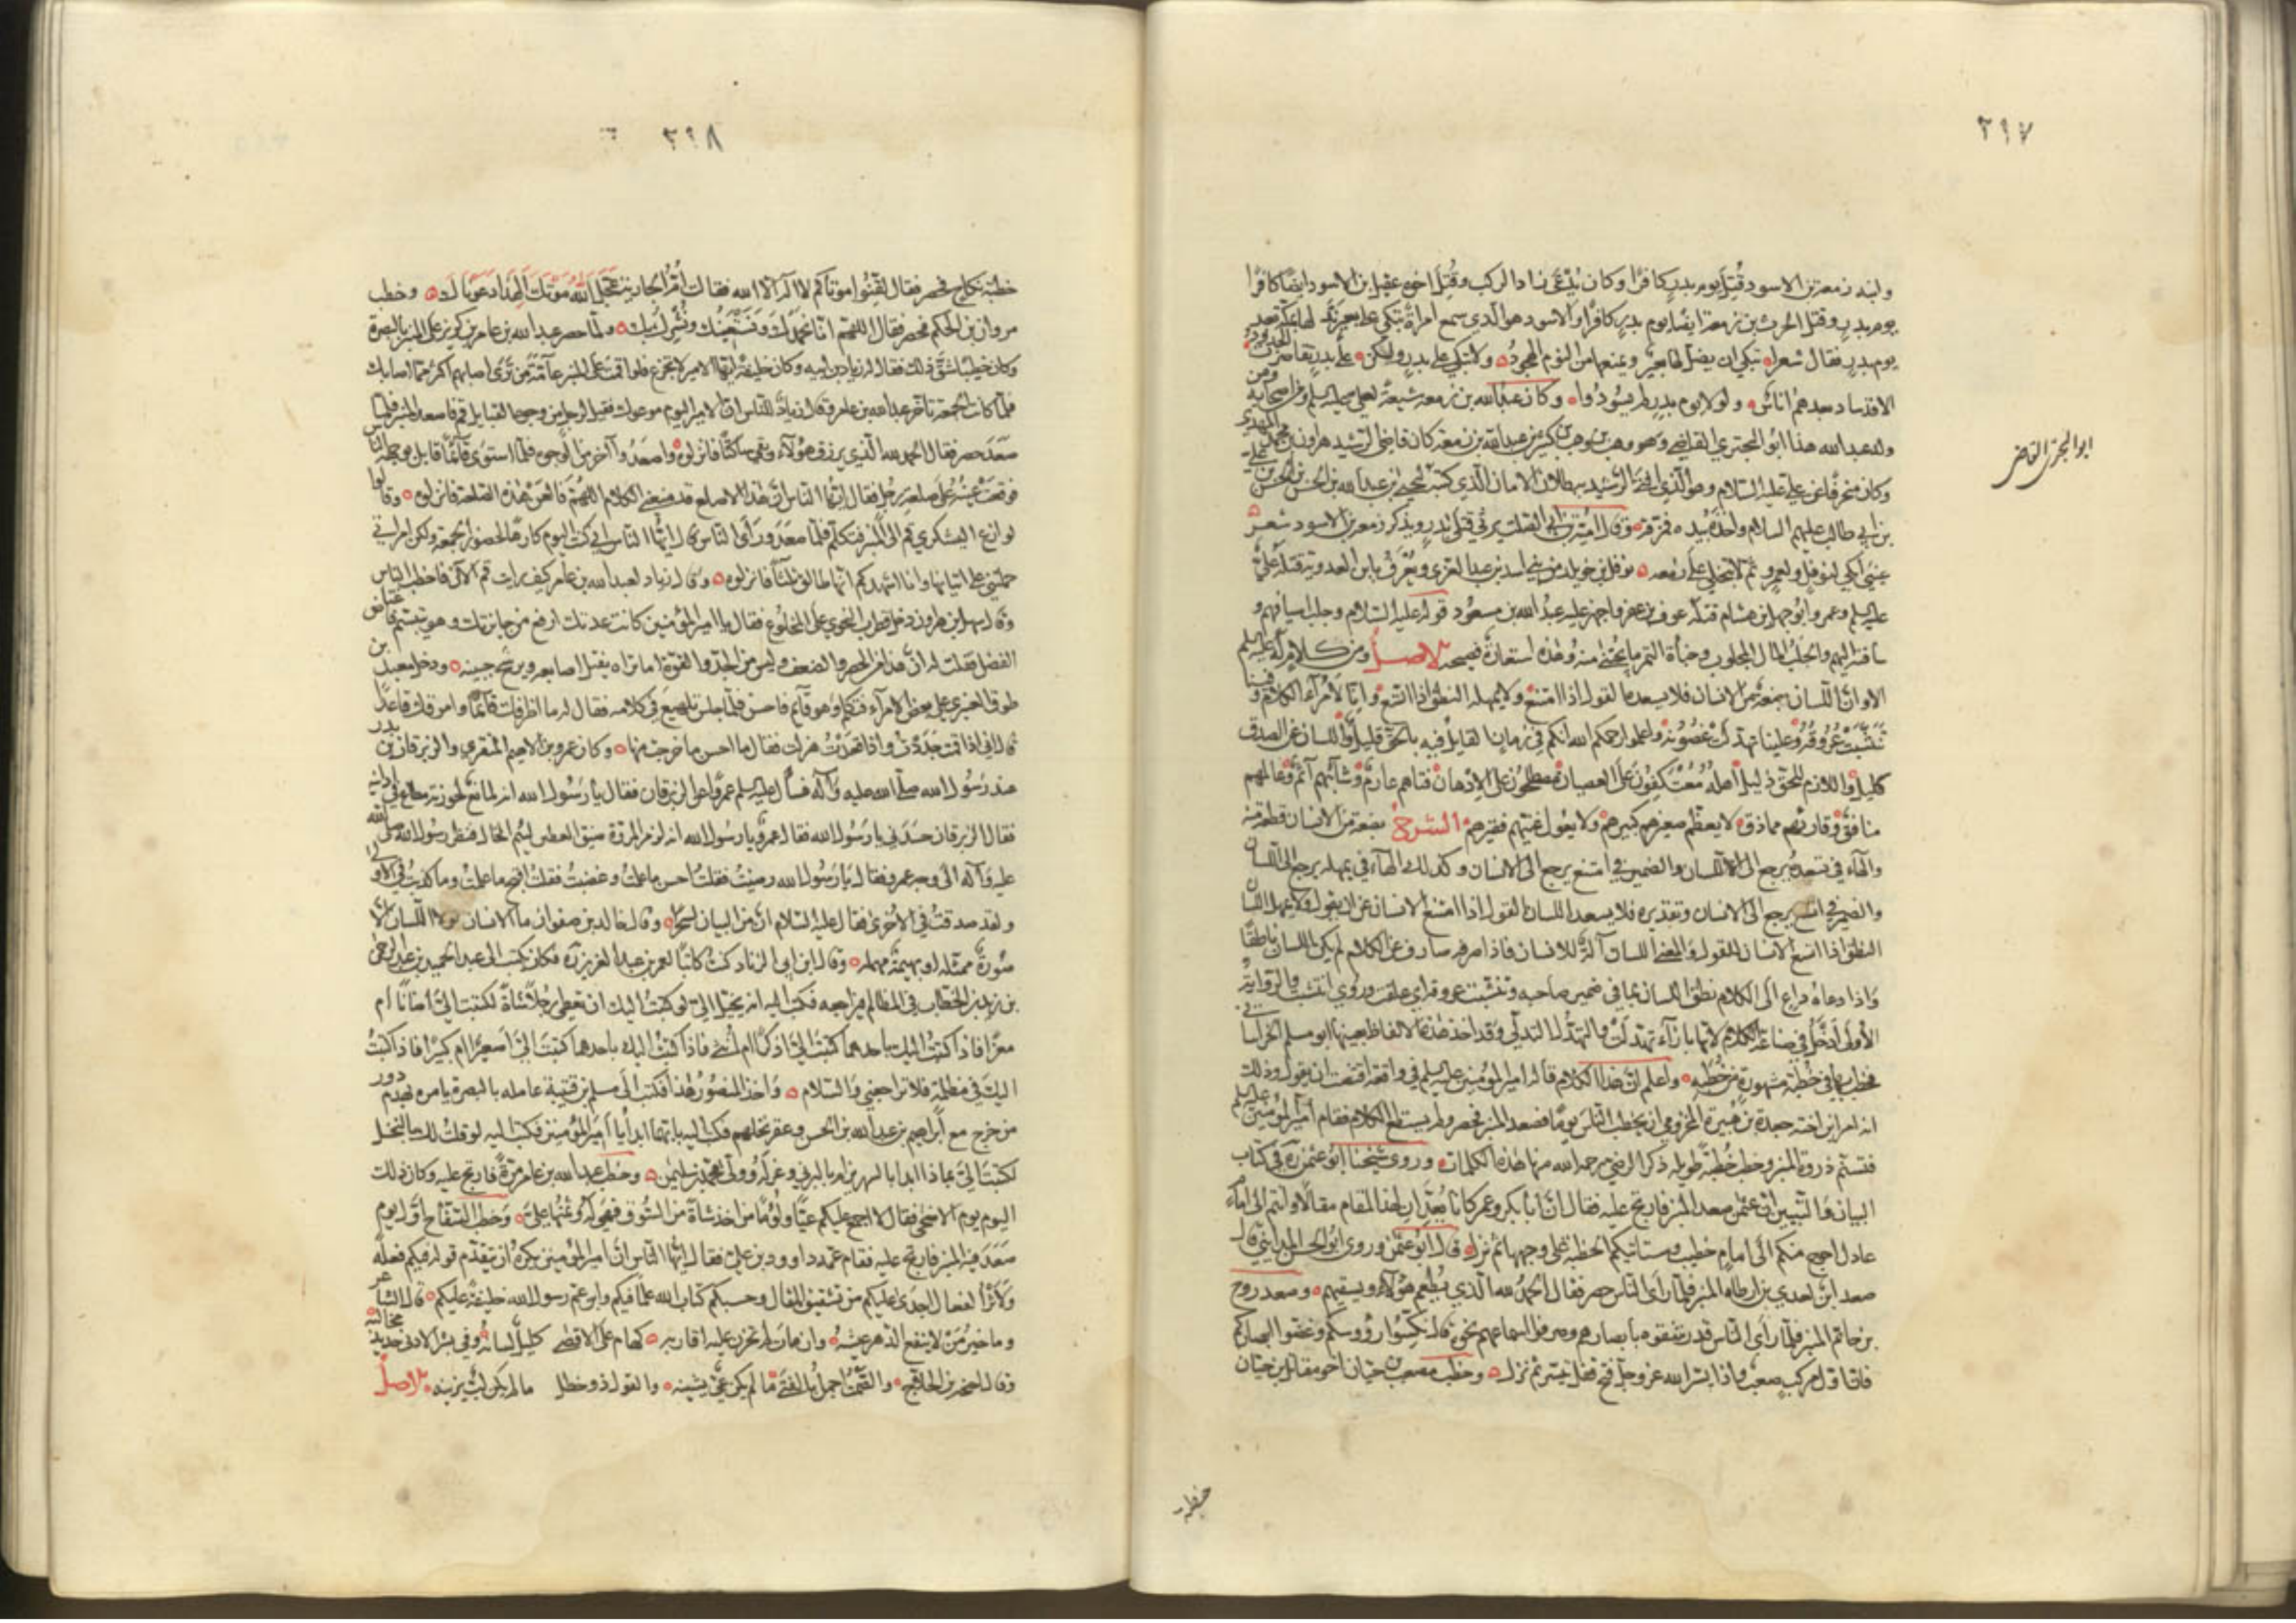 ٢٩٧
وابنه زمعة بن الاسود قُتِلَ يوم بدر كافرًا وكان يُدْعَى زاد الركب وقُتِلَ اخوه عقيل بن الاسود ايضًا كافرًا
يوم بدر وقتل الحرث بن زمعة ايضا يوم بدر كافرًا والاسود هو الّذي سمع امراةً تبكي على بعير لها بمكة بعد
يوم بدر فقال شعرا أتبكي ان يضلّ لها بعير ويمنعها من النوم الهجودُ ولا تبكي على بدر ولكن على بدر تقاصرت الجدود
الا قد ساد بعدهم اناسٌ ولولا يوم بدر لم يسودُوا وكان عبد الله بن زمعه شيعةً لعلي عليه السلم ومن اصحابه ومن
ولد عبد الله هذا ابو البختري القاضي وهو وهب بن وهب بن كبير بن عبد الله بن زمعة كان قاضي الرشيد هرون بن محمد المهدي
وكان منحرفًا عن عليّ عليه السّلام وهو الّذي افتى الرّشيد ببطلان الامان الّذي كتبه ليحيى بن عبد الله بن الحسن بن الحسن بن علي
بن ابي طالب عليهم السلام واخذه بيده فمزقه وقال اميّة بن ابي الصّلت يرثي قتلى بدر ويذكر زمعة بن الاسود شعر
عيني ابكي لنوفل ولعمرو ثم لا تبخلي على زمعه نوفل بن خويلد من بني اسد بن عبد العزى ويُعرف بابن العدوية قتله عليٌّ
عليه السلم وعمرو ابو جهل بن هشام قتله عوف بن عفرا واجهز عليه عبد الله بن مسعود قوله عليه السّلام وجلب اسيافهم و
ساقته اليهم والجَلَبُ المال المجلوب وجناة الثمر ما يجتنى منه وهذه استعارة فصيحه الاصل ومن كلام له عليه السلم
الا وان اللّسان بضعة من الانسان فلا يسعده القول اذا امتنع ولا يمهله النطق اذا اتسع وانّا لأُمَرآء الكلام وفينا
تَنَشَّبَتْ عُرُوقُهُ وعلينا تهدّلت غصونه واعلموا رحمكم الله انكم في زمان القايل فيه بالحق قليل واللسان عن الصدق
كليل واللازم للحق ذليل اهله مُعْتَكِفُونَ على العصيان مصطلحون على الادهان فتاهم عارم وشائبهم آثم وعالمهم
منافق وقارئهم مماذق لا يعظم صغيرهم كبيرهم ولا يعول غنيهم فقيرهم الشرح بضعة من الانسان قطعة منه
والهآء في تسعده يرجع الى اللسان والضمير في امتنع يرجع الى الانسان وكذلك الهآء في يمهله يرجع الى اللسان
والضمير في اتسع يرجع الى الانسان وتقديره فلا يسعد اللسان القول اذا امتنع الانسان عن ان يقول ولا يمهل اللسان
النطق اذا اتسع الانسان للقول والمعنى اللسان آلةٌ للانسان فاذا صرفه صارف عن الكلام لم يكن اللسان ناطقًا
واذا دعاه داع الى الكلام نطق اللسان بما في ضمير صاحبه وتنشبت عروقه اي علقت وروي انتشبت والرواية
الأولى أدخل في صناعة الكلام لانها بازآء تهدّلت والتهدّل التدلّي وقد اخذ هذه الالفاظ بعينها ابو مسلم الخراساني
فخطب بها في خطبة مشهورة من خطبه واعلم انّ هذا الكلام قاله امير المؤمنين عليه السلم في واقعة اقتضت ان يقوله وذلك
انه امر ابن اخته جعدة بن هبيرة المخزومي ان يخطب الناس يومًا فصعد المنبر فحصر ولم يستطع الكلام فقام امير المؤمنين عليه السلم
فتسنّم ذروة المنبر وخطب خُطبةً طويله ذكر الرضي رحمه الله منها هذه الكلمات وروى شيخنا ابو عثمن ره في كتاب
البيان والتّبيين انّ عثمن صعد المنبر فارتج عليه فقال انّ ابا بكر وعمر كانا يُعدّان لهذا المقام مقالًا وانتم الى امام
عادل احوج منكم الى امام خطيب وستاتيكم الخطبة على وجهها ثم نزل قال ابو عثمن وروى ابو الحسن المدايني قال
صعد ابن لعدي بن ارطاة المنبر فلمّا رأى النّاس حصر فقال الحمدُ لله الّذي يُطعم هؤلآء ويسقيهم وصعد روح
بن حاتم المنبر فلما رأى الناس قد رشقوه بأبصارهم وصرفوا اسماعهم نحوه قال نكّسوا رؤوسكم وغضّوا ابصاركم
فانّ اوّل مركب صعب واذا يسّر الله عز وجل فتح قفل تيسّر ثم نزل وخطب مصعب بن حيّان اخو مقاتل بن حيّان
ابو البختري القاضي
خطبة
٢٩٨
خطبة نكاح فحصر فقال لقّنوا موتاكم لا اله الا الله فقالت أُمّ الجارية عَجَّلَ اللهُ مَوْتَكَ أَلِهَذَا دَعَوْنَاكَ وخطب
مروان بن الحكم فحصر فقال اللهمّ انّا نحمدك ونستعينك ونُشرك بك ولمّا حصر عبد الله بن عامر بن كريز على المنبر بالبصرة
وكان خطيبًا شقّ ذلك فقال له زياد بن ابيه وكان خليفته ايّها الامير لا تجزع فلو اقمت على المنبر عآمّة من ترى اصابهم اكثر ممّا اصابك
فلمّا كانت الجمعة تأخر عبد الله بن عامر وقال زياد للناس انّ الامير اليوم موعوك فقيل لرجل من وجوه القبايل قم فاصعد المنبر فلما
صَعَدَ حصر فقال الحمد لله الّذي يرزق هؤلآء وبقي ساكتًا فانزلوه واصعدوا آخر من الوجوه فلمّا استوى قآئمًا قابل بوجهه الناس
فوقعَتْ عينهُ على صلعة رجل فقال ايّها الناس انّ هذا الاصلع قد منعني الكلام اللهمّ فالعن هذه الصلعة فانزلوه وقالوا
لوازع اليشكري قم الى المنبر فتكلّم فلمّا صَعَدَ ورأى الناس قال ايّها الناس اني كنت اليوم كارهًا لحضور الجمعة ولكن امراتي
حملتني على اتيانها وانا اشهدكم انها طالق ثلثًا فانزلوه وقال زياد لعبد الله بن عامر كيف رايت قم الآن فاخطب الناس
وقال سهل بن هرون دخل قطرب النحوي على المخلوع فقال يا امير المؤمنين كانت عدتك ارفع من جائزتك وهو يتبسّم فاغتاظ
الفضل فقلت له انّ هذا من الحصر والضعف وليس من الجلد والقوة اما تراه يفتل اصابعه ويرشح جبينه ودخل معبد بن
طوق العنبري على بعض الامرآء فتكلّم وهو قآئم فاحسن فلمّا جلس تلهيع في كلامه فقال له ما اظرفك قآئمًا واموقك قاعدًا
قال اني اذا قمت جَدَدْتُ واذا قعدت هزلت فقال ما احسن ما خرجت منها وكان عمرو بن الاهتم المنقري والزبرقان بن بدر
عند رسول الله صلّى الله عليه وآله فسأل عليه السلم عمرًا عن الزبرقان فقال يا رسول الله انه لمانع لحوزته مطاع في ادانيه
فقال الزبرقان حسدني يا رسول الله فقال عمرو يا رسول الله انه لزمر المروّة ضيق العطن لئيم الخال فنظر رسول الله صلى الله
عليه وآله الى وجه عمرو فقال يا رسول الله رضيتُ فقلتُ احسن ما علمتُ وغضبتُ فقلتُ اقبح ما علمتُ وما كذبتُ في الاولى
ولقد صدقتُ في الأُخرى فقال عليه السّلام انّ من البيان لسحرًا وقال خالد بن صفوان ما الانسان لولا اللّسان الّا
صُورةٌ ممثّله او بهيمةٌ مهمله وقال ابن ابي الزناد كنتُ كاتبًا لعمر بن عبد العزيز ره فكان يكتب الى عبد الحميد بن عبد الرحمن
بن زيد بن الخطّاب في المظالم فيراجعه فكتب اليه انه يخيّل اليّ لو كتبتُ اليك ان تعطي رجُلًا شاةً لكتبت اليَّ أضأنًا أم
معزًا فاذا كتبتُ اليك باحدهما كتبتَ اليَّ أذكرًا ام انثى فاذا كتبتُ اليك باحدهما كتبتَ اليَّ أصغيرًا ام كبيرًا فاذا كتبتُ
اليك في مظلمة فلا تراجعني والسّلام وأخذ المنصور هذا فكتب الى مسلم بن قتيبة عامله بالبصرة يامره بهدم دور
من خرج مع ابرهيم بن عبد الله بن الحسن وعقر نخلهم فكتب اليه بايّهما ابدأ يا امير المؤمنين فكتب اليه لو قلتُ لك بالنخل
لكتبتَ اليَّ بماذا ابدا بالشهريز ام بالبرني وعزلَه وولّى محمّد بن سليمن وخطب عبد الله بن عامر مرّةً فارتج عليه وكان ذلك
اليوم يوم الاضحى فقال لا اجمع عليكم عِيًّا ولُؤمًا من اخذ شاةً من السّوق فهي له وثمنها عليّ وخطب السّفّاح اوّل يوم
صَعَدَ فيه المنبر فارتج عليه فقام عمّه داوود بن عليّ فقال ايّها الناس انّ امير المؤمنين يكره ان يتقدّم قوله فيكم فعلَه
ولأثرُ الفعال اجدى عليكم من تشقيق المقال وحسبكم كتاب الله علمًا فيكم وابن عم رسول الله خليفةً عليكم قال الشاعر
وما خيرُ مَنْ لا ينفع الدهر عيشه وان مات لم تحزن عليه اقاربه كهام على الاقصى كليلٌ لسانه وفي بشر الادنى حديد مخالبه
وقال احيحة بن الجلاح والصّمت اجمل بالفتى ما لم يكن عيّ يشينه والقول ذو خطل ما لم يكن لبّ يزينه الاصل